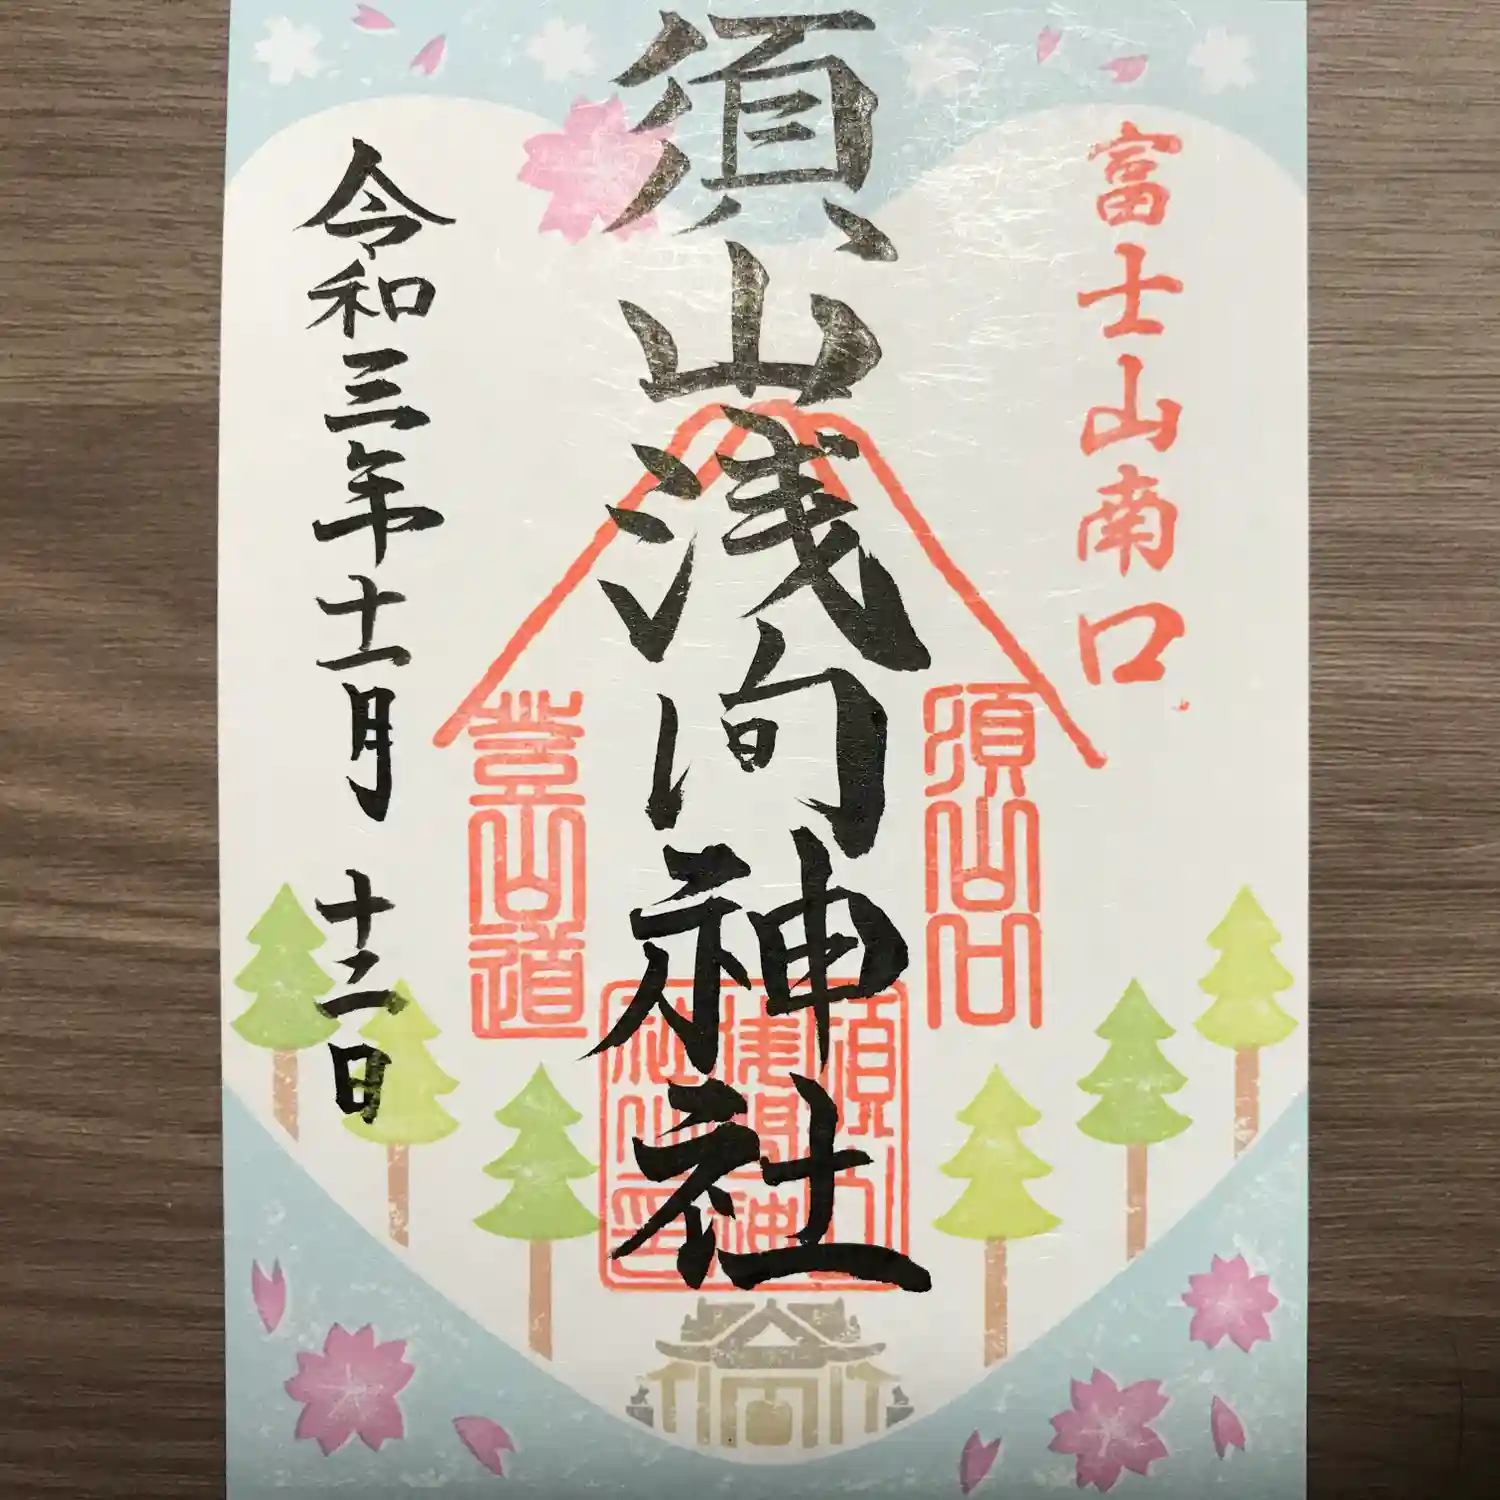 富士山南口
須山口
須山浅間神社
須山浅間神社印
登山道
令和三年十一月 十二日